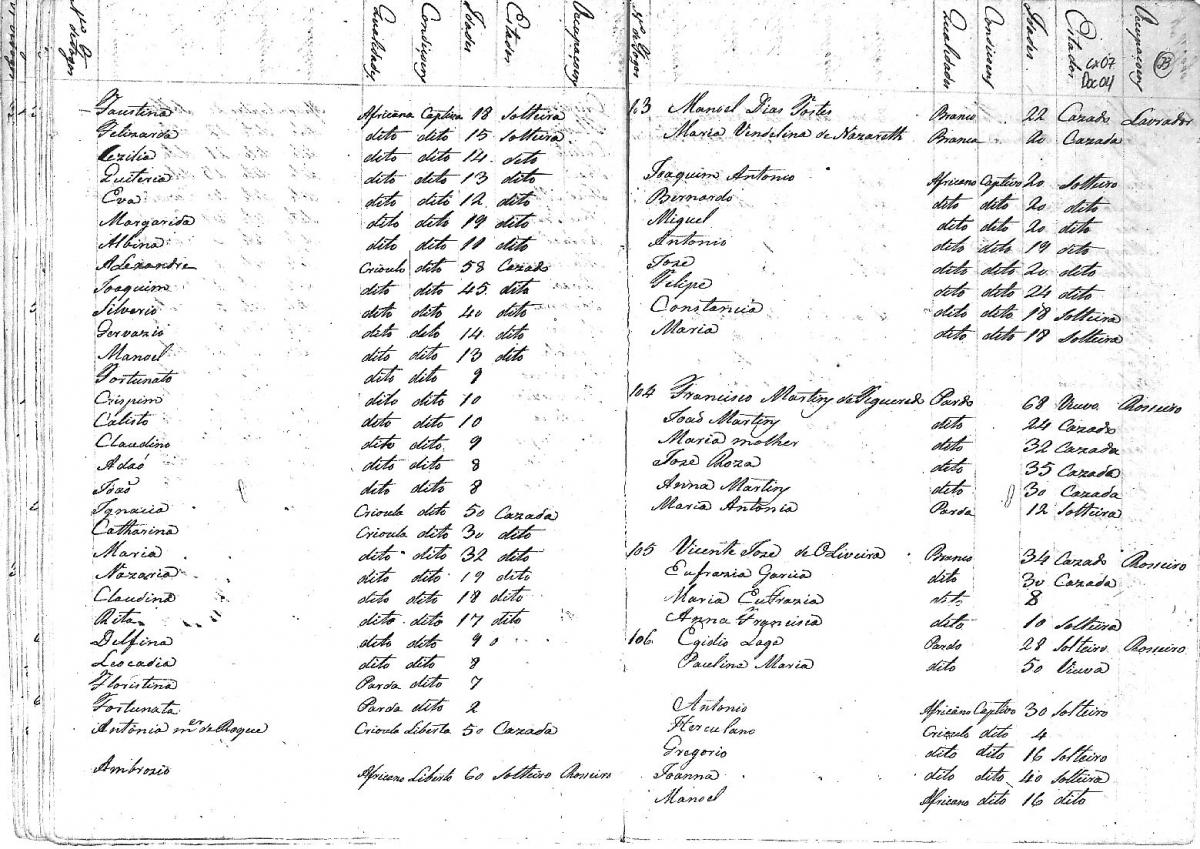 Nº dos Fogos Qualidades Condiçoens Idades Estados Occupaçoens
Faustina Africana Captiva 18 Solteira
Felizarda dito dito 15 Solteira
Cezilia dito dito 14 dito
Quiteria dito dito 13 dito
Eva dito dito 12 dito
Margarida dito dito 19 dito
Albina dito dito 11 dito
Alexandre Crioulo dito 58 Cazado
Joaquim dito dito 45 dito
Silverio dito dito 40 dito
Gervazio dito dito 14 dito
Manoel dito dito 13 dito
Fortunato dito dito 9
Crispim dito dito 10
Calisto dito dito 10
Claudino dito dito 9
Adaõ dito dito 8
Joaõ dito dito 8
Ignacia Crioula dito 50 Cazada
Catharina Crioula dito 30 dito
Maria dito dito 32 dito
Nazaria dito dito 19 dito
Claudina dito dito 18 dito
Rita dito dito 17 dito
Delfina dito dito 9
Leocadia dito dito 8
Floristina Parda dito 7
Fortunata Parda dito 2
Antonia mer de Roque Crioula Liberta 50 Cazada
Ambrozio Africano Liberto 60 Solteiro Rosseiro
Nº dos Fogos Qualidades Condiçoens Idades Estados Occupaçoens
73
cx 07
Doc 04
103 Manoel Dias Fortes Branco 22 Cazado Lavrador
Maria Vendelina de Nazareth Branca 20 Cazada
Joaquim Antonio Africano Captivo 20 Solteiro
Bernardo dito dito 20 dito
Miguel dito dito 20 dito
Antonio dito dito 19 dito
Joze dito dito 20 dito
Felipe dito dito 24 dito
Constancia dito dito 18 Solteira
Maria dito dito 18 Solteira
104 Francisco Martins de Figueredo Pardo 68 Viuvo Rosseiro
Joaõ Martins dito 24 Cazado
Maria molher dito 32 Cazada
Joze Roza dito 35 Cazada
Anna Martins dito 30 Cazada
Maria Antonia Parda 12 Solteira
105 Vicente Joze de Oliveira Branco 34 Cazado Rosseiro
Eufrazia Garcia dito 30 Cazada
Maria Eufrazia dito 8
Anna Francisca dito 10 Solteira
106 Egidio Lage Pardo 28 Solteiro Rosseiro
Paulina Maria dito 50 Viuva
Antonio Africano Captivo 30 Solteiro
Herculano Crioulo dito 4
Gregorio dito dito 16 Solteiro
Joanna dito dito 40 Solteira
Manoel Africano dito 16 dito